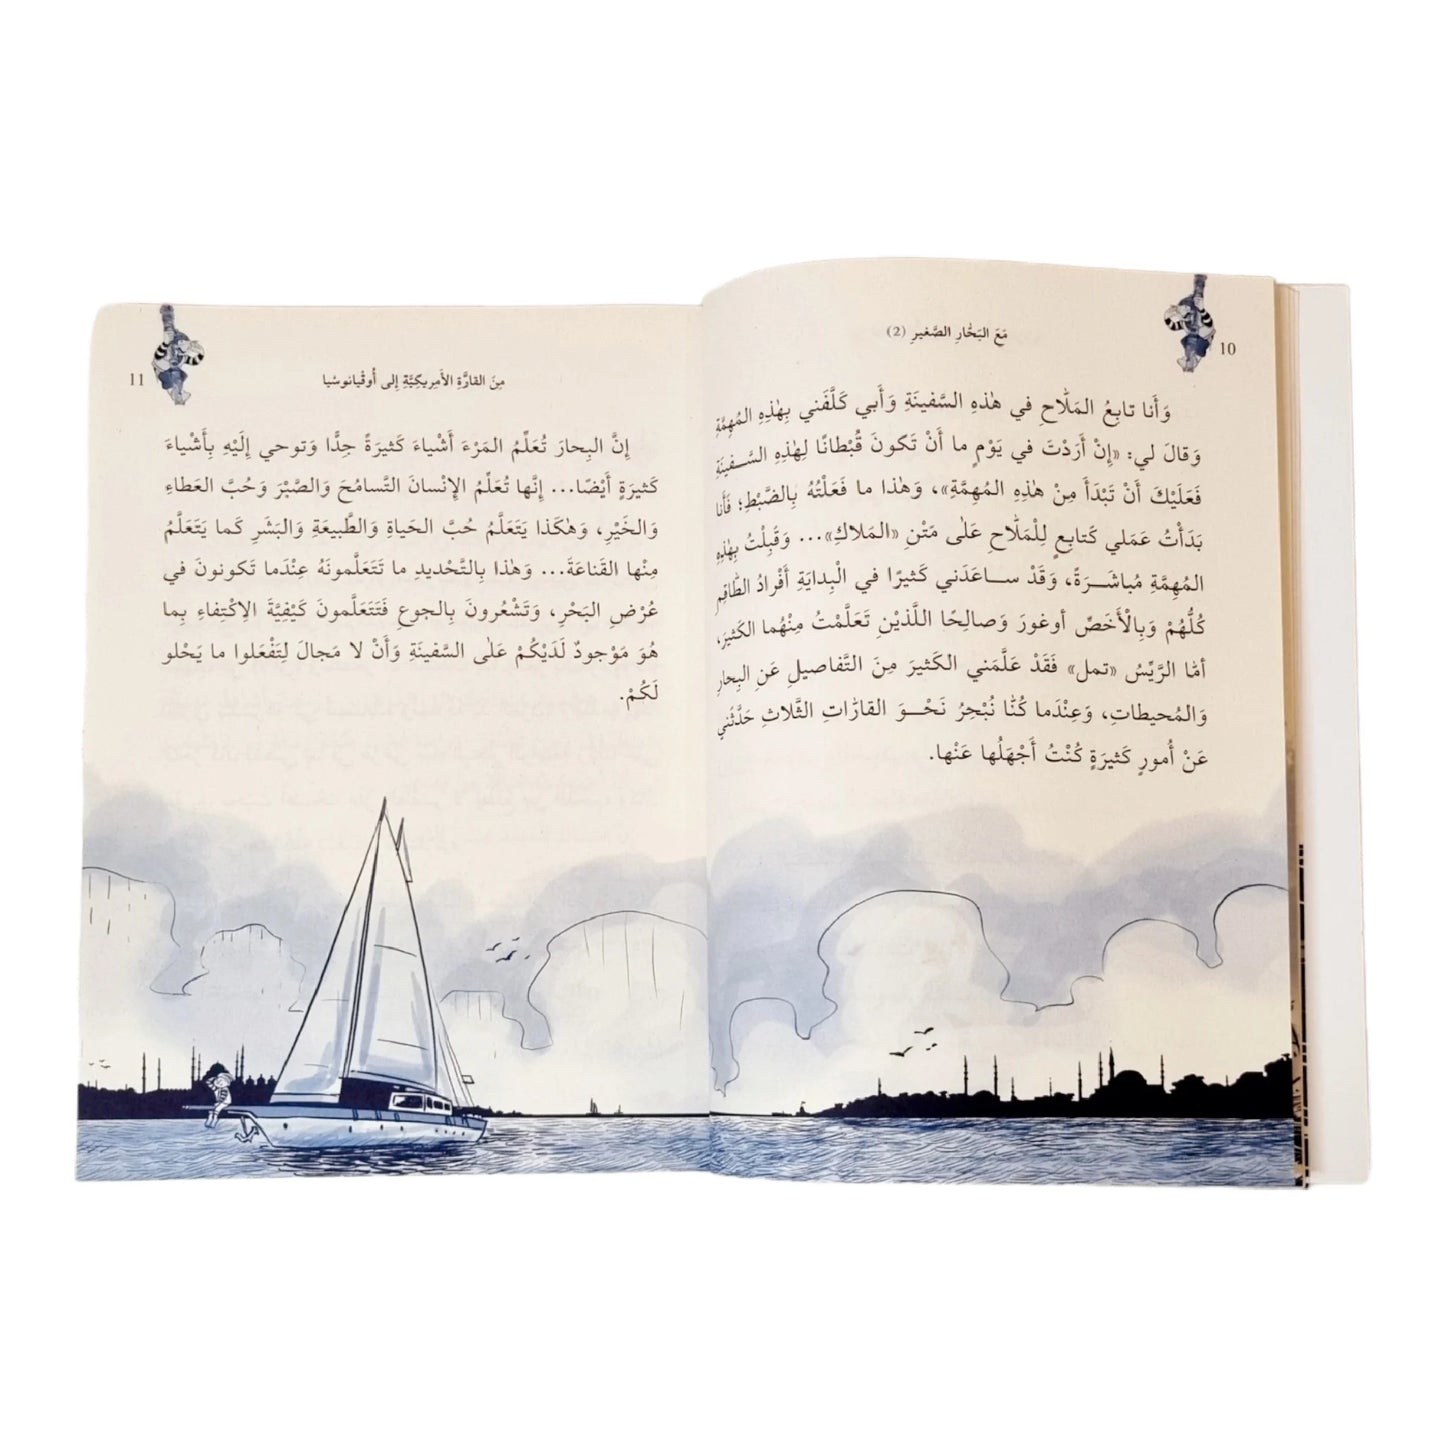 10
مَعَ البَحّارِ الصَّغيرِ (2)
وَأَنا تابِعُ المَلّاحِ في هٰذِهِ السَّفينَةِ وَأَبي كَلَّفَني بِهٰذِهِ المُهِمَّةِ
وَقالَ لي: «إِنْ أَرَدْتَ في يَوْمٍ ما أَنْ تَكونَ قُبْطانًا لِهٰذِهِ السَّفينَةِ
فَعَلَيْكَ أَنْ تَبْدَأَ مِنْ هٰذِهِ المُهِمَّةِ»، وَهٰذا ما فَعَلْتُهُ بِالضَّبْطِ؛ فَأَنا
بَدَأْتُ عَمَلي كَتابِعٍ لِلْمَلّاحِ عَلٰى مَتْنِ «المَلاكِ»... وَقَبِلْتُ بِهٰذِهِ
المُهِمَّةِ مُباشَرَةً، وَقَدْ ساعَدَني كَثيرًا في الْبِدايَةِ أَفْرادُ الطّاقِمِ
كُلُّهُمْ وَبِالْأَخَصِّ أوغورَ وَصالِحًا اللَّذَيْنِ تَعَلَّمْتُ مِنْهُما الكَثيرَ،
أمّا الرَّيِّسُ «تمل» فَقَدْ عَلَّمَني الكَثيرَ مِنَ التَّفاصيلِ عَنِ البِحارِ
وَالمُحيطاتِ، وَعِنْدَما كُنّا نُبْحِرُ نَحْوَ القارّاتِ الثَّلاثِ حَدَّثَني
عَنْ أُمورٍ كَثيرَةٍ كُنْتُ أَجْهَلُها عَنْها.
11
مِنَ القارَّةِ الأَمِريكِيَّةِ إِلى أُوقْيانوسْيا
إِنَّ البِحارَ تُعَلِّمُ المَرْءَ أَشْياءَ كَثيرَةً جِدًّا وَتوحي إِلَيْهِ بِأَشْياءَ
كَثيرَةٍ أَيْضًا... إِنَّها تُعَلِّمُ الإِنْسانَ التَّسامُحَ وَالصَّبْرَ وَحُبَّ العَطاءِ
وَالخَيْرِ، وَهٰكَذا يَتَعَلَّمُ حُبَّ الحَياةِ وَالطَّبيعَةِ وَالبَشَرِ كَما يَتَعَلَّمُ
مِنْها القَناعَةَ... وَهٰذا بِالتَّحْديدِ ما تَتَعَلَّمونَهُ عِنْدَما تَكونونَ في
عُرْضِ البَحْرِ، وَتَشْعُرونَ بِالجوعِ فَتَتَعَلَّمونَ كَيْفِيَّةَ الِاكْتِفاءِ بِما
هُوَ مَوْجودٌ لَدَيْكُمْ عَلٰى السَّفينَةِ وَأَنْ لا مَجالَ لِتَفْعَلوا ما يَحْلو
لَكُمْ.